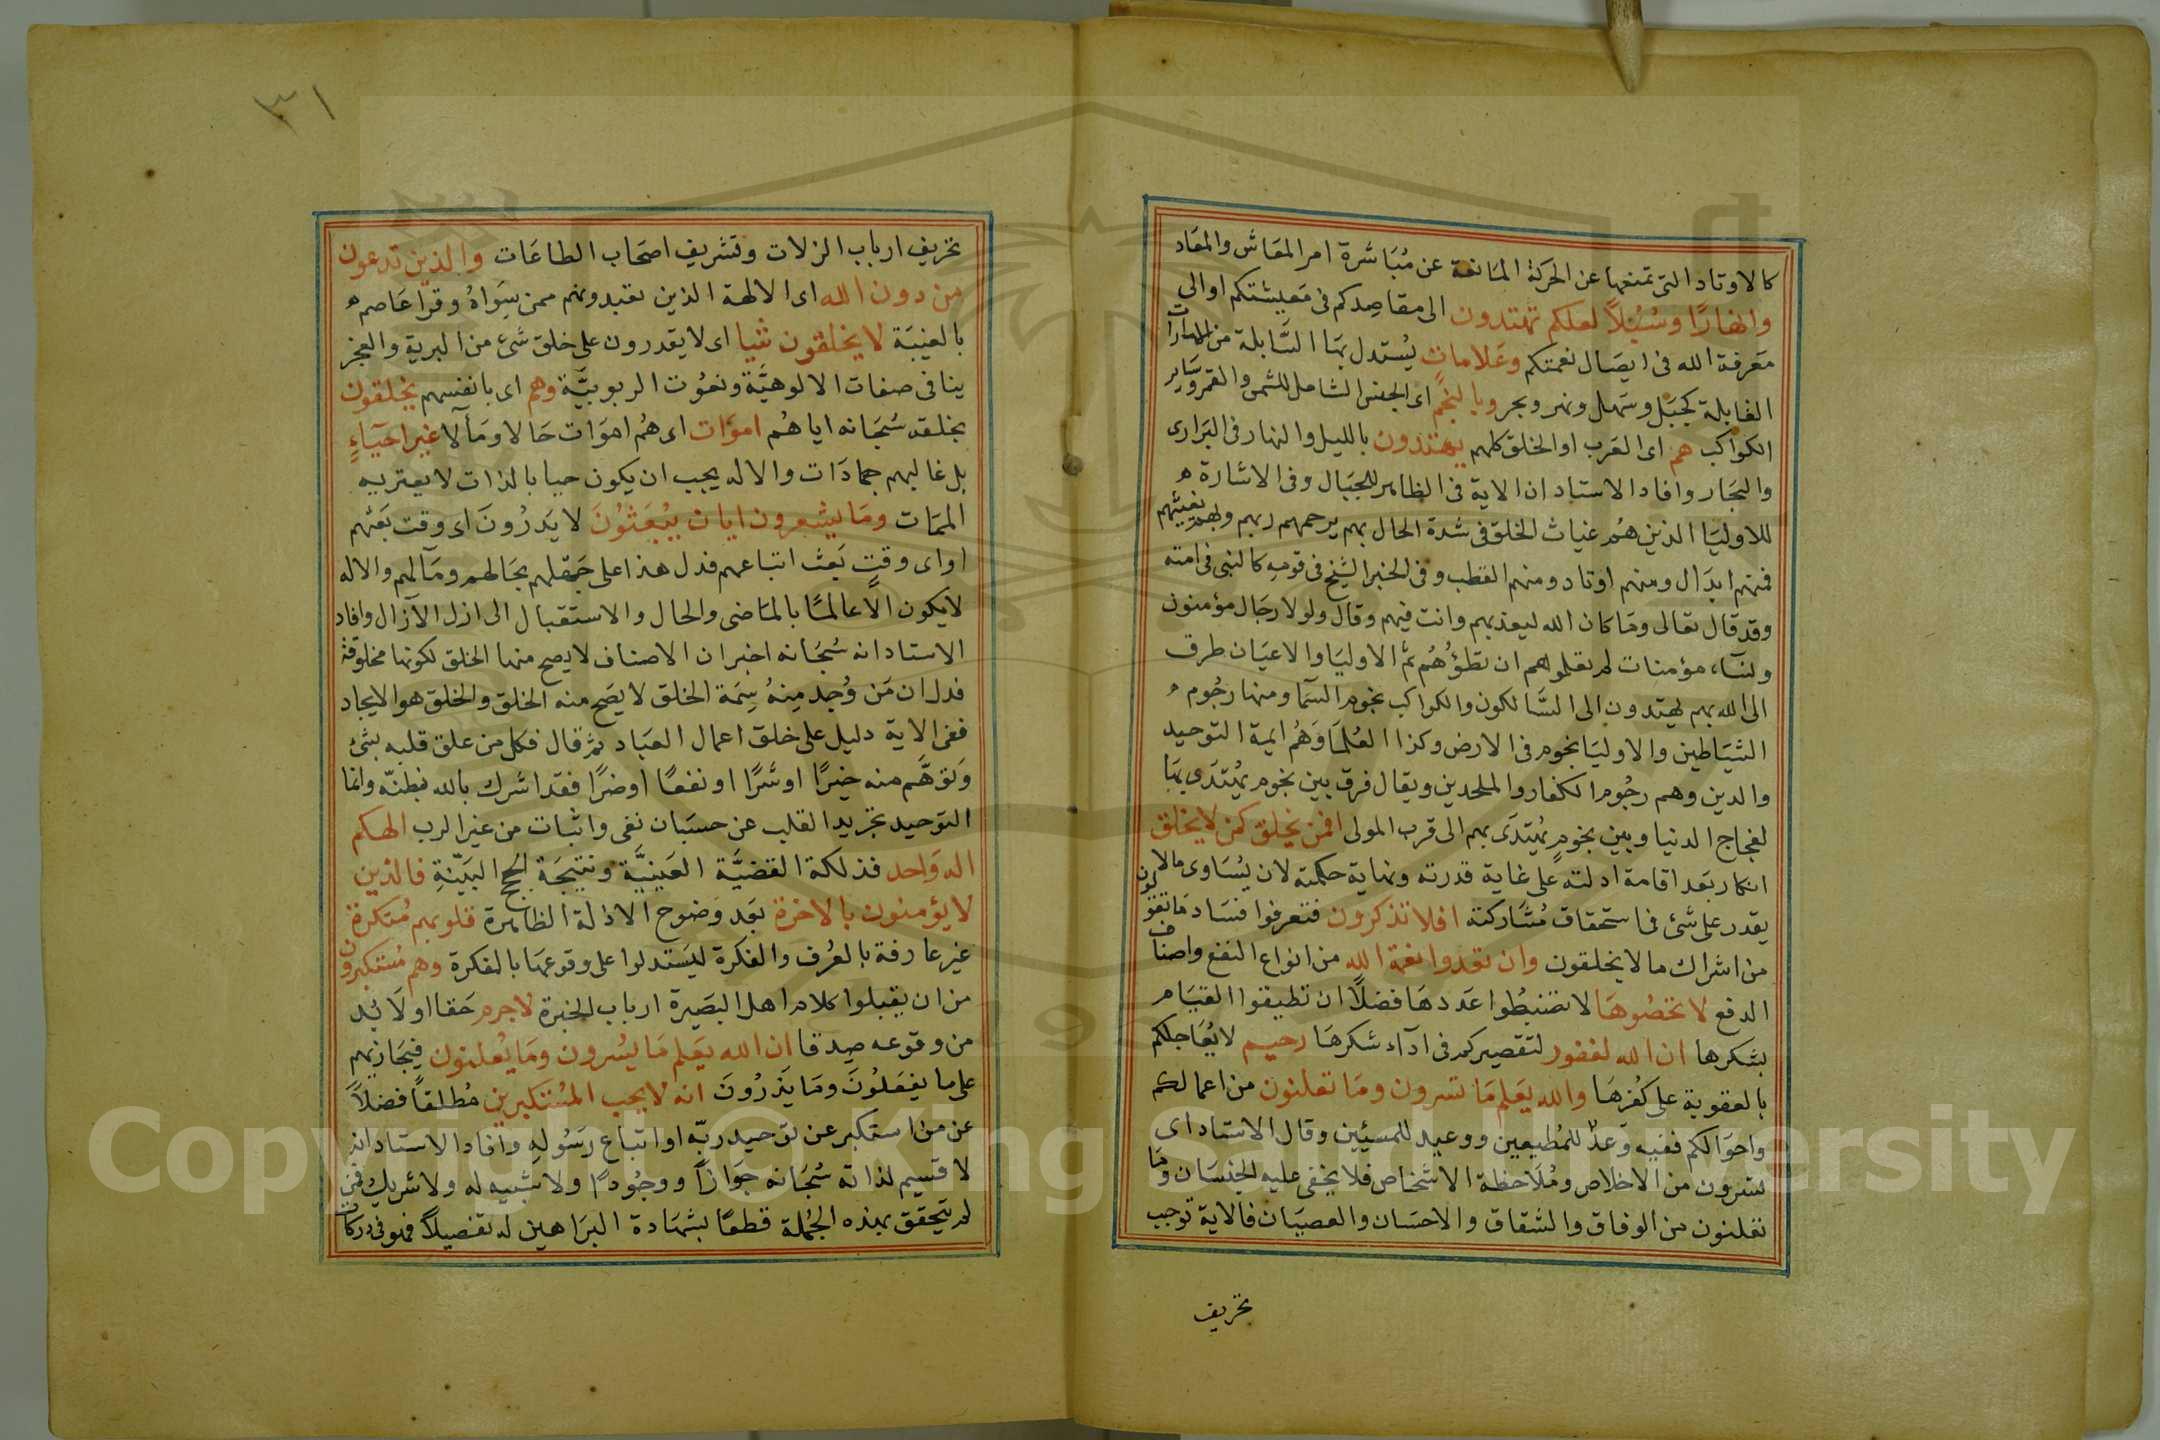 كالاوتاد التى تمنعها عن الحركة المانعة عن مُبَاشرة امر المعَاش والمعَاد
وانهارًا وسُبُلاً لعلكم تهتدون الى مقاصِدكم فى مَعيشتكم او الى
مَعَرفة الله فى ايصَال نعمتكم وعَلاماتٍ يُستدل بهَا السَّابلة من المارات
القابلة كجبَل وسَهل ونهر وبحر وبالنجم اى الجنس الشامل للشمس والقمر وسَاير
الكواكب هم اى العَرب او الخلق كلهم يهتدون بالليل والنهار فى البَرارى
والبحَار وافاد الاستاد ان الاية فى الظاهر للجبَال وفى الاشارة
للاوليَا الذين هُم غياث الخلق فى شدة الحال بهم يرحمهم ربهم وبهم يغيثهم
فمنهم ابدَال ومنهم اوتاد ومنهم القطب وفى الخبر الشيخ فى قومه كالنبى فى امته
وقد قال تعَالى ومَا كان الله ليعذبهم وانت فيهم وقال ولولا رجَال مؤمنون
ونسَآء مؤمنات لم تعلموهم ان تطؤُهُم ثم الاوليَا والاعيَان طرف
الى الله بهم يهتدون الى السَّالكون والكواكب نجوم السَّمَا ومنها رجُوم
الشيَاطين والاوليَا نجوم فى الارض وكذا العُلمَا وَهُم ايمة التوحيد
والدين وهم رجُوم الكفار والملحدين ويقال فرق بين نجوم يُهتدَى بهَا
لفجاج الدنيا وبين نجومٍ يُهتدَى بهم الى قرب المولى افمن يخلق كمن لا يخلق
انكار بَعد اقامة ادلته على غاية قدرته ونهاية حكمته لان يُسَاوى مالا
يقدر على شئ فى استحقاق مُشَاركته افلا تذكرون فتعرفوا فسَاد مَا تقولون
من اشراك ما لا يخلقون وان تعَدوا نعمة الله من انواع النفع واصناف
الدفع لا تحصُوهَا لا تضبطُوا عَددهَا فضلاً ان تطيقوا القيَام
بشكرها ان الله لغفور لتقصيركم فى ادآء شكرهَا رحيم لا يُعَاجلكم
بالعقوبة على كُفرهَا والله يَعلم مَا تسرون ومَا تعلنون من اعمالكم
واحوَالكم ففيه وَعدٌ للمُطيعين ووعيد للمسيئين وقال الاستاد اى
تسرون من الاخلاص ومُلاحظة الاشخاص فلا يخفى عليه الحِسَان ومَا
تعلنون من الوفاق والشقاق والاحسَان والعصيَان فالاية توجب
تخريف
٣١
تخريف ارباب الزلات وتشريف اصحَاب الطاعَات والذين تدعون
من دون الله اى الالهة الذين تعبدونهم ممن سِوَاهُ وقرا عَاصم
بالغيبَة لا يخلقون شيا اى لا يقدرون على خلق شئ من البرية والعجز
ينافى صفات الالوهيَّة ونعُوت الربوبيَّة وهم اى بانفسهم يخلقون
بخلقه سُبحَانه اياهُم اموَات اى هُم اموَات حَالا ومَآلا غير احيَآءٍ
بل غالبهم جمادَات والاله يجب ان يكون حيا بالذات لا يعتريه
الممَات ومَا يشعرون ايان يُبعَثوُنَ لا يَدرُونَ اى وقت بَعثهم
او اى وقتٍ بَعث اتباعهم فدل هذا على جَهلهم بحَالهم ومَآلهم والاله
لا يكون الاّ عالمًا بالمَاضى والحال والاستقبال الى ازل الآزال وافاد
الاستاد انه سُبحَانه اخبر ان الاصناف لا يصح منها الخلق لكونها مخلوقة
فدل ان مَن وُجد مِنهُ سِمَة الخلق لا يصَح منه الخلق والخلق هو الايجاد
ففى الاية دليل على خلق اعمال العبَاد ثم قال فكل من علق قلبه بشئ
وَتوهَّم منه خيرًا او شرًا او نفعًا او ضرًا فقد اشرك بالله بظنّه وانما
التوحيد تجريد القلب عن حسبَان نفى واثبات من غير الرب الهكم
اله وَاحد فذلكة القضيَّة العَينيَّة ونتيجَة الحجج البَيّنَةِ فالذين
لا يؤمنون بالاخرة بَعَد وَضوح الادلة الظاهرة قلوبهم مُنكرة
غير عارفة بالعُرف والفكرة ليَستدلوا على وقوعهَا بالفكرة وهم مُستكبرون
من ان يقبلوا كلام اهل البصَيرة ارباب الخبرة لاجرم حَقا اولا بُد
من وقوعه صِدقا ان الله يَعلم مَا يسُرون ومَا يُعلنون فيجَازيهم
على ما يفعَلوُنَ ومَا يَذرُونَ انه لا يحب المُستكبرين مُطلقاً فضلاً
عن من استكبر عن توحيد ربّه او اتباع رَسُولهِ وافاد الاستاد انه
لا قسيم لذاته سُبحَانه جَوَازاً ووجُودًا ولا شبيه له ولا شريك فمن
لم يتحقق بهذه الجُملة قطعًا بشهَادة البرَاهين له تفصيلاً فهو فى دركات